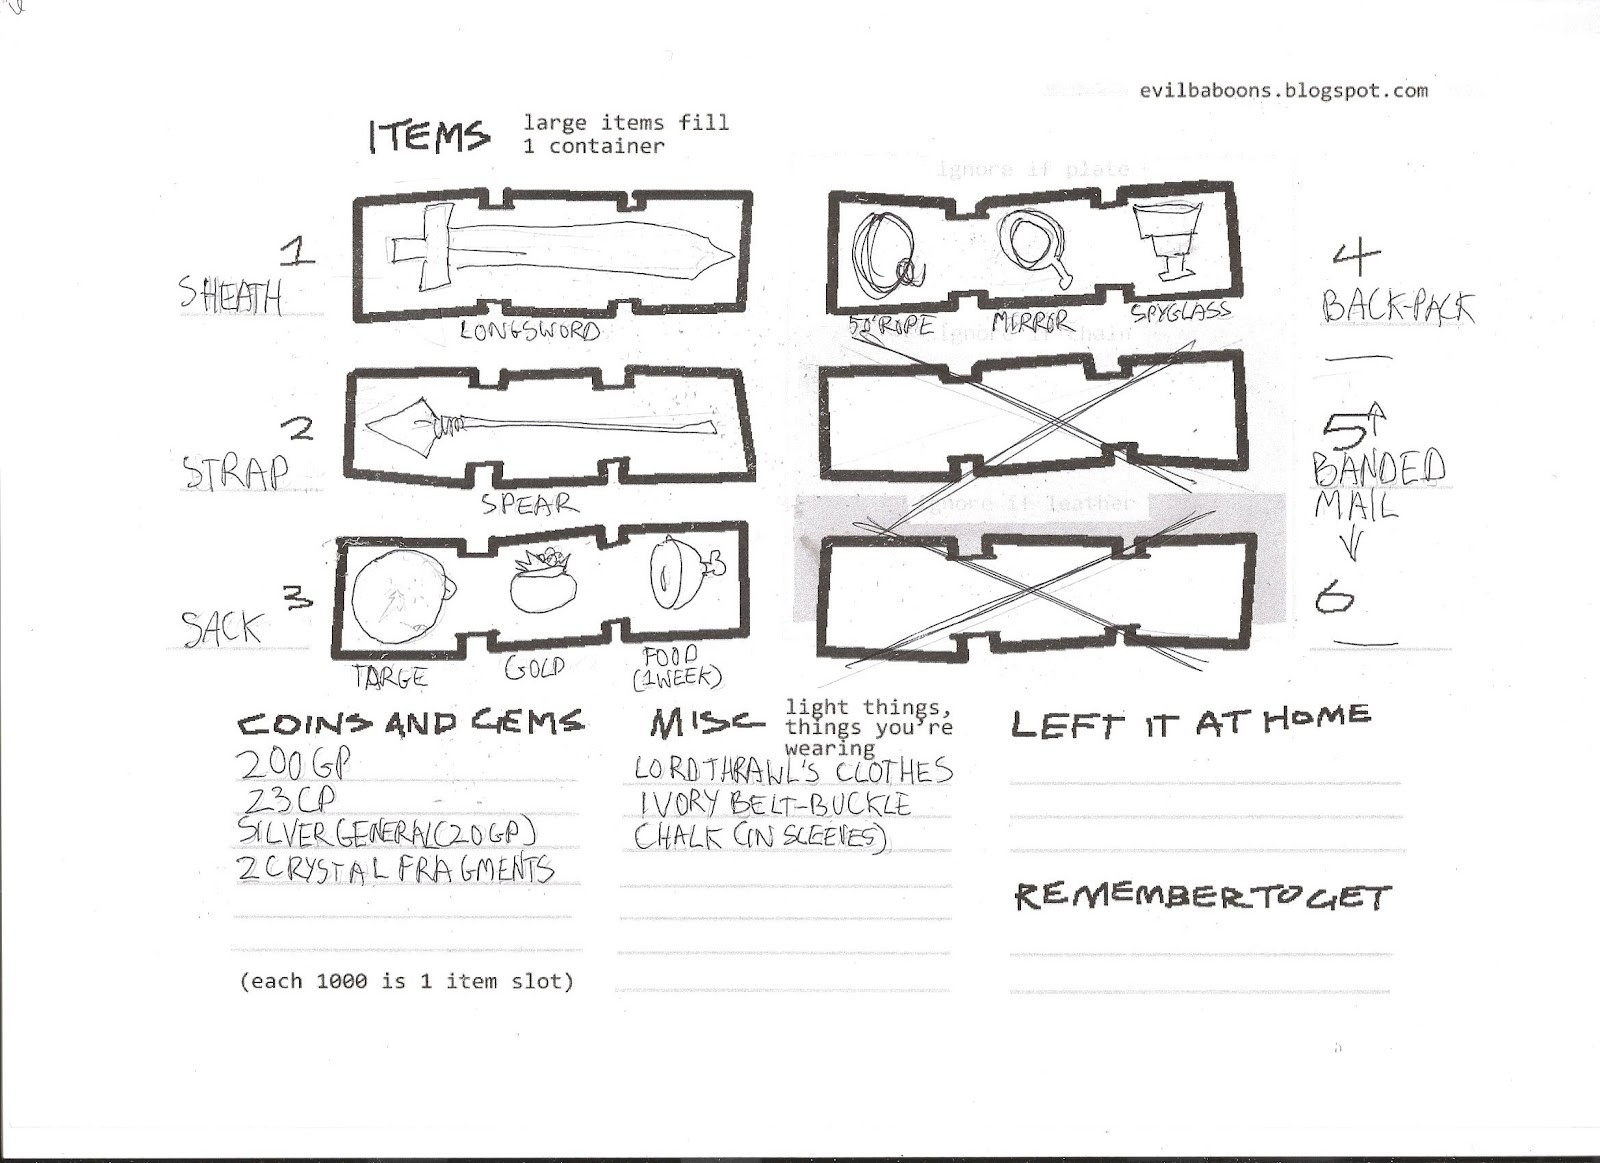 evilbaboons.blogspot.com
ITEMS
large items fill
1 container
ignore if plate
1
SHEATH
LONGSWORD
50' ROPE
MIRROR
SPYGLASS
4
BACK-PACK
ignore if chain
2
STRAP
SPEAR
5
BANDED
MAIL
6
ignore if leather
3
SACK
TARGE
GOLD
FOOD
(1 WEEK)
×3
COINS AND GEMS
200GP
23CP
SILVER GENERAL (20GP)
2 CRYSTAL FRAGMENTS
(each 1000 is 1 item slot)
MISC
light things,
things you're
wearing
LORD THRAWL'S CLOTHES
IVORY BELT-BUCKLE
CHALK (IN SLEEVES)
LEFT IT AT HOME
REMEMBER TO GET